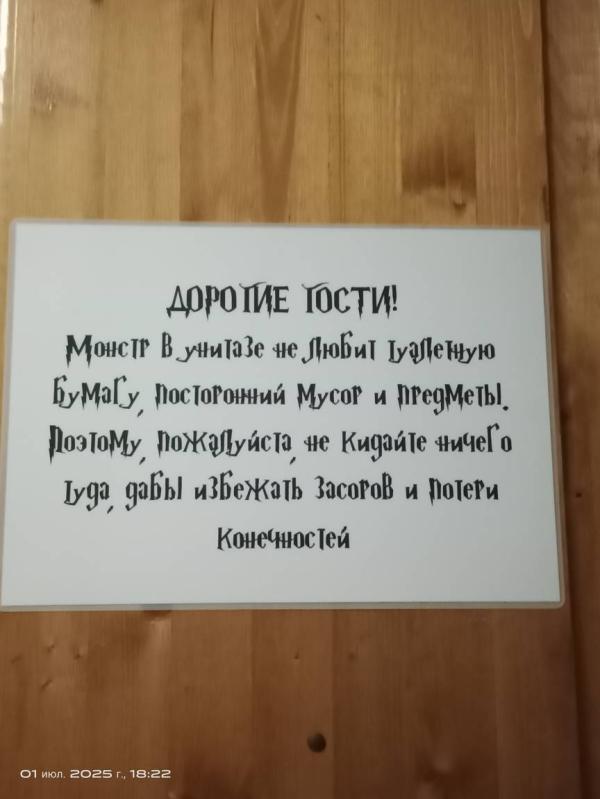 ДОРОГИЕ ГОСТИ!
Монстр в унитазе не любит туалетную
бумагу, посторонний мусор и предметы.
Поэтому, пожалуйста, не кидайте ничего
туда, дабы избежать засоров и потери
конечностей
01 июл. 2025 г., 18:22